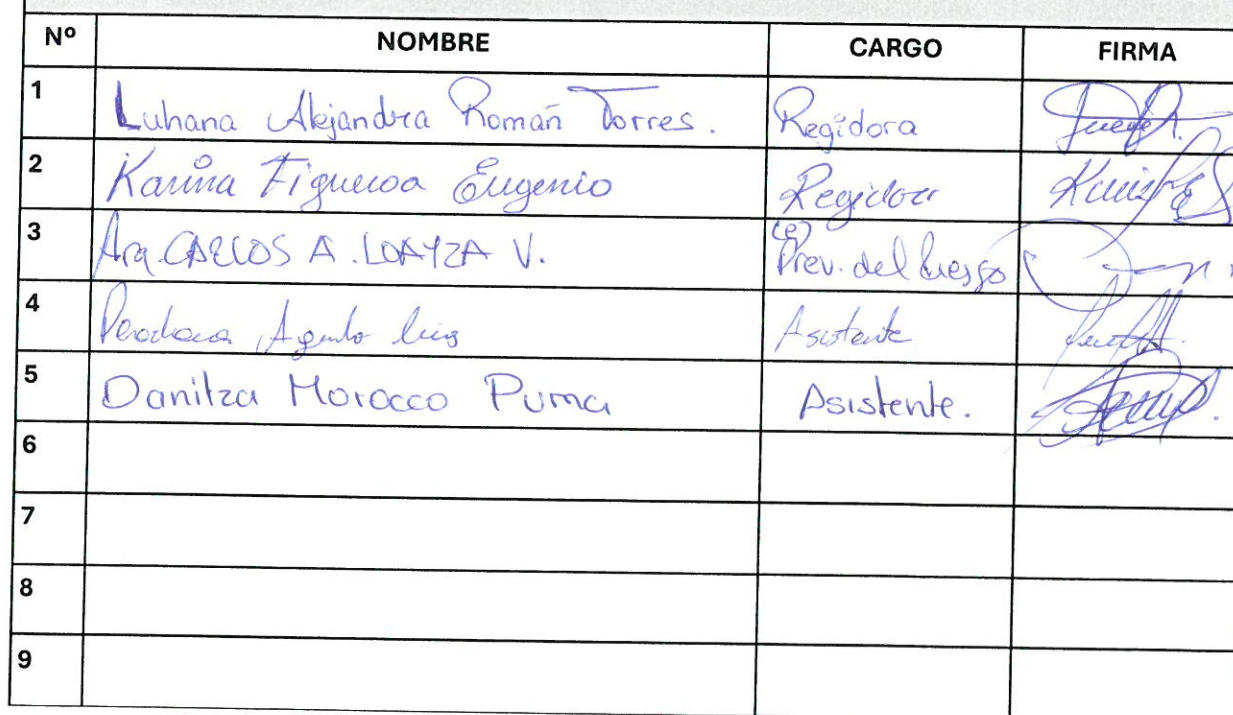 Nº NOMBRE CARGO FIRMA
1 Luhana Alejandra Román Torres. Regidora
2 Karina Figueroa Eugenio Regidora
3 Arq. CARLOS A. LOAYZA V. (e) Prev. del Riesgo
4 Asistente
5 Danitza Morocco Puma Asistente.
6
7
8
9